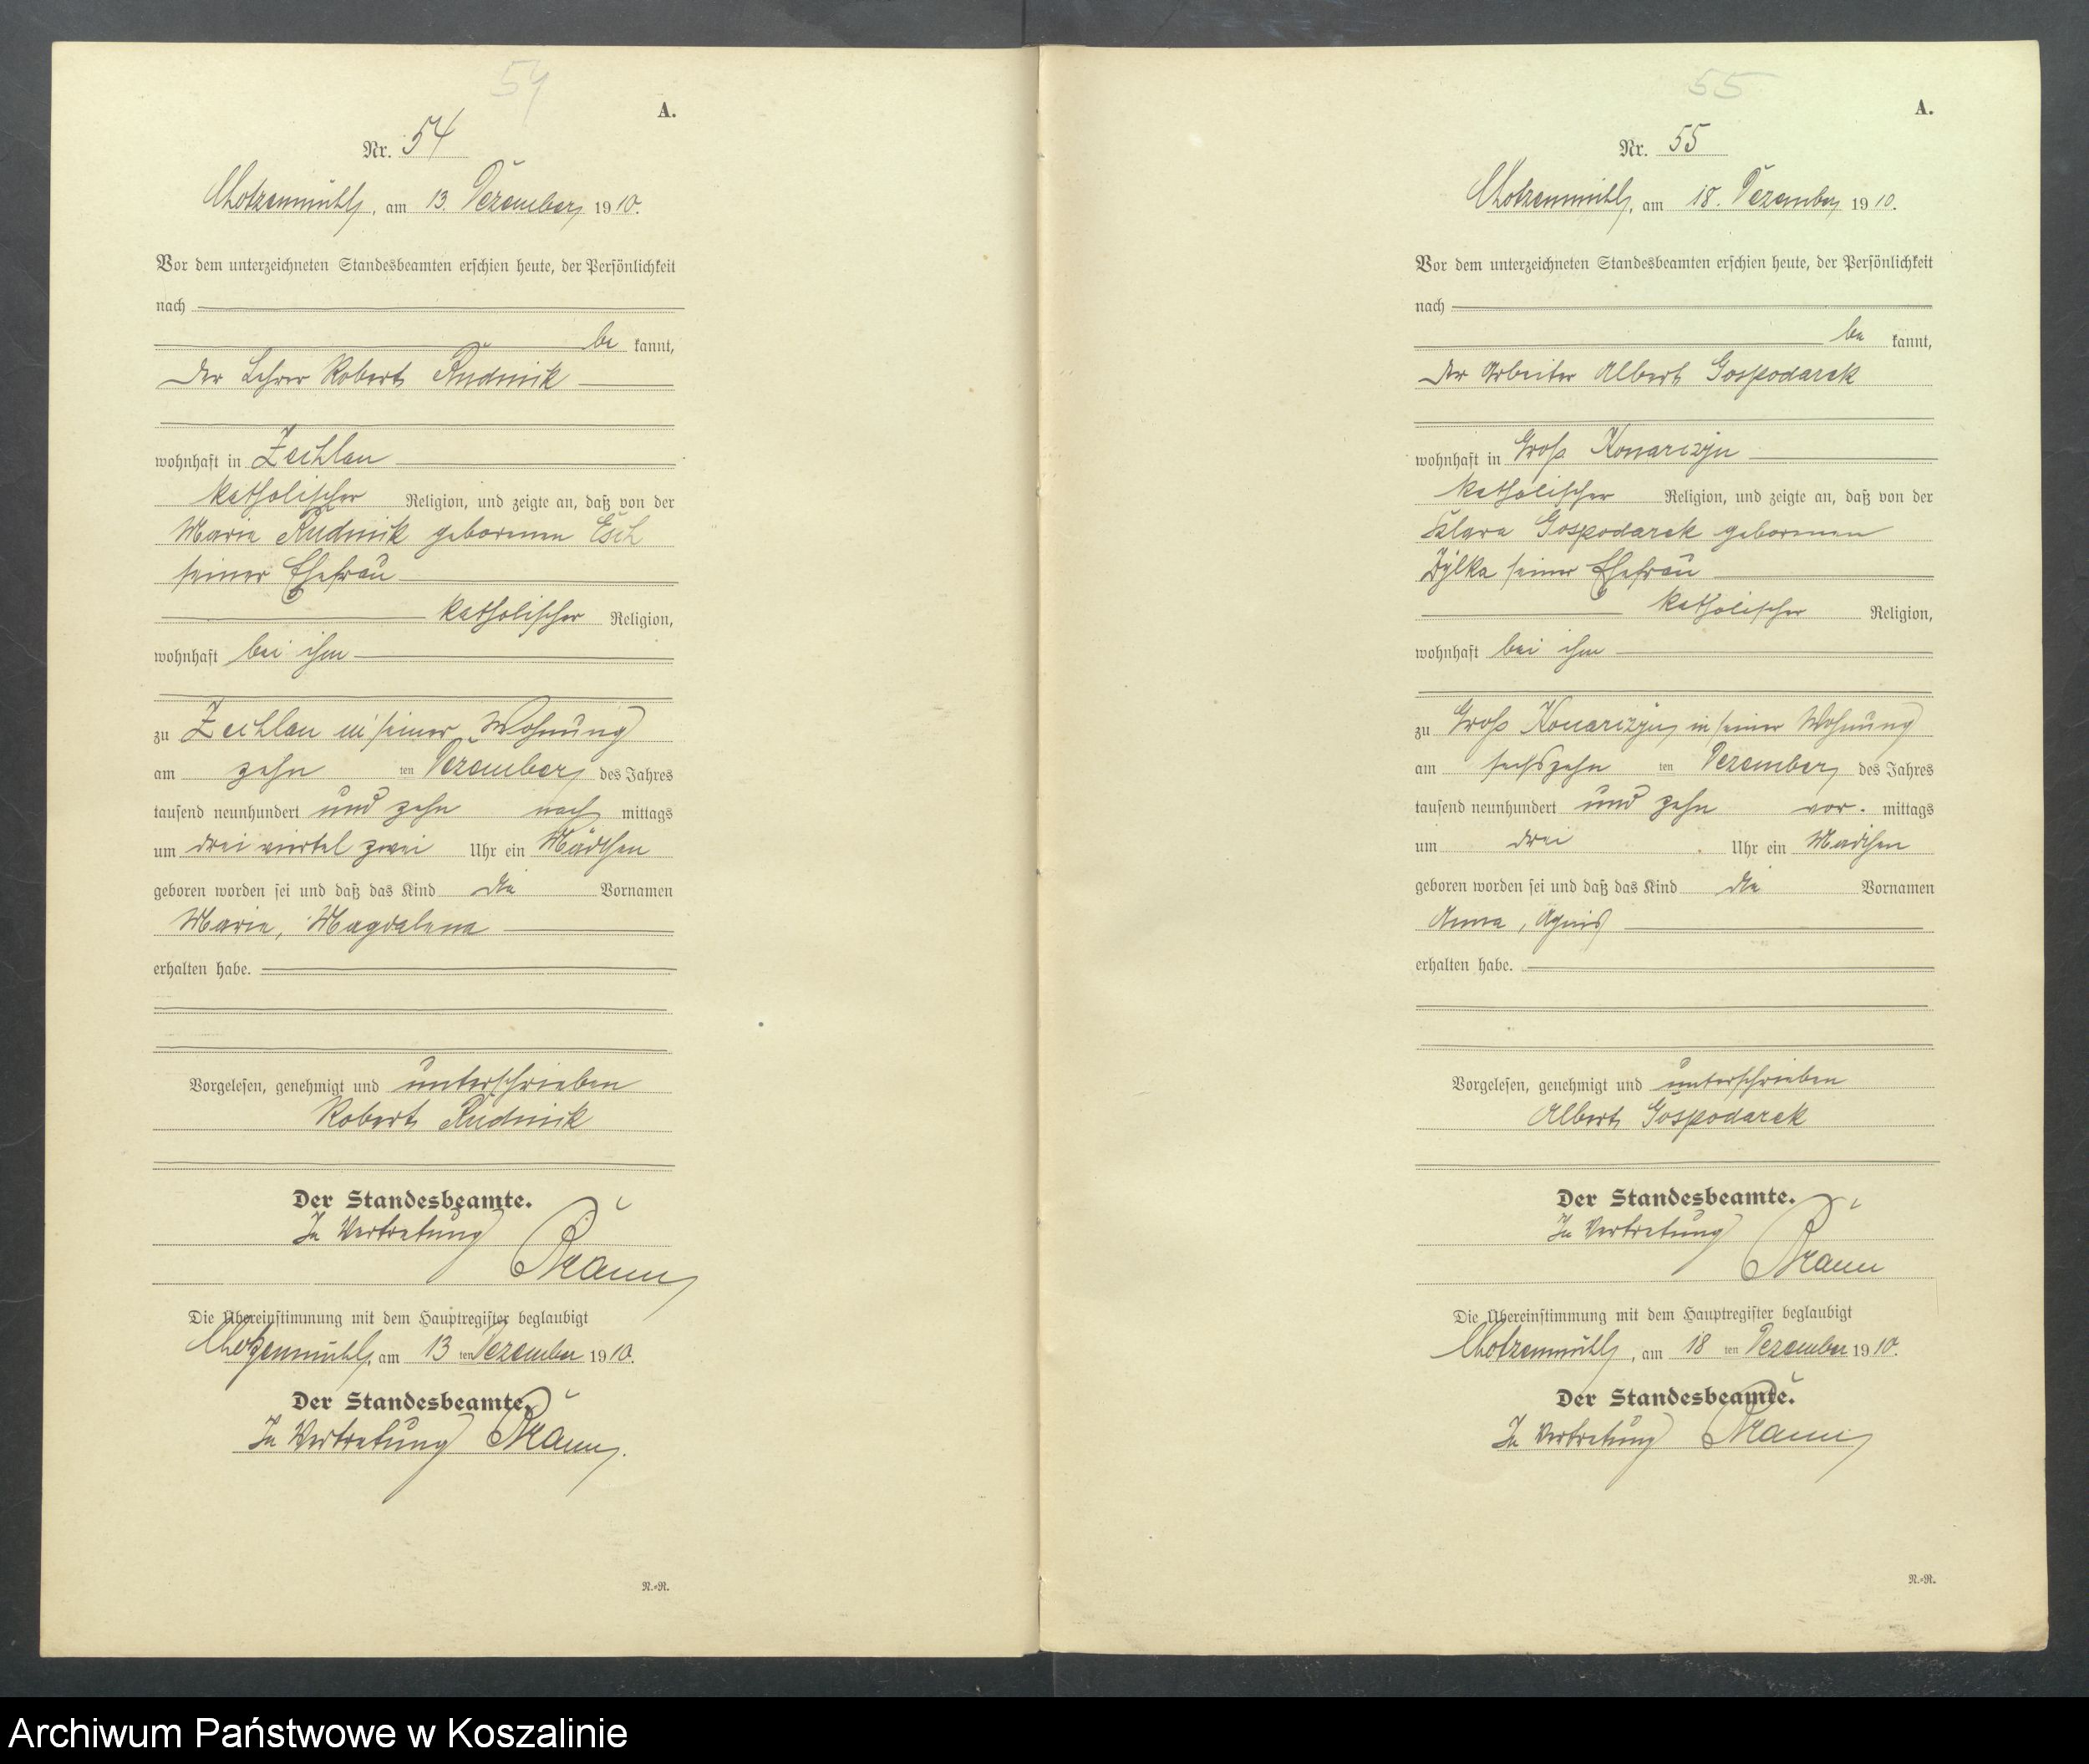 54
A.
Nr. 54
Chotzenmühl, am 13. Dezember 1910.
Vor dem unterzeichneten Standesbeamten erschien heute, der Persönlichkeit
nach
be kannt,
der Lehrer Robert Rudnik
wohnhaft in Zechlau
katholischer Religion, und zeigte an, daß von der
Maria Rudnik geborenen Esch
seiner Ehefrau
katholischer Religion,
wohnhaft bei ihm
zu Zechlau in seiner Wohnung
am zehn ten Dezember des Jahres
tausend neunhundert und zehn nach mittags
um drei viertel zwei Uhr ein Mädchen
geboren worden sei und daß das Kind die Vornamen
Maria, Magdalena
erhalten habe.
Vorgelesen, genehmigt und unterschrieben
Robert Rudnik
Der Standesbeamte.
In Vertretung
Die Übereinstimmung mit dem Hauptregister beglaubigt
Chotzenmühl, am 13 ten Dezember 1910.
Der Standesbeamte.
In Vertretung
N.=R.
55
A.
Nr. 55
Chotzenmühl, am 18. Dezember 1910.
Vor dem unterzeichneten Standesbeamten erschien heute, der Persönlichkeit
nach
be kannt,
der Arbeiter Albert Gospodarek
wohnhaft in Groß Konarczyn
katholischer Religion, und zeigte an, daß von der
Klara Gospodarek geborenen
seiner Ehefrau
katholischer Religion,
wohnhaft bei ihm
zu Groß Konarczyn, in seiner Wohnung
am sechszehn ten Dezember des Jahres
tausend neunhundert und zehn vor. mittags
um drei Uhr ein Mädchen
geboren worden sei und daß das Kind die Vornamen
Anna, Agnes
erhalten habe.
Vorgelesen, genehmigt und unterschrieben
Albert Gospodarek
Der Standesbeamte.
In Vertretung
Die Übereinstimmung mit dem Hauptregister beglaubigt
Chotzenmühl, am 18 ten Dezember 1910.
Der Standesbeamte.
In Vertretung
N.=R.
Archiwum Państwowe w Koszalinie